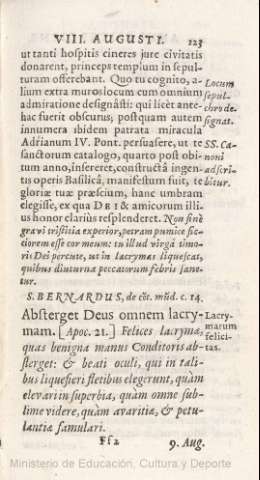 VIII. AUGUSTI. 123
ut tanti hospitis cineres jure civitatis
donarent, princeps templum in sepul-
turam offerebant. Quo tu cognito, a-
lium extra muros locum cum omnium
admiratione designâsti: qui licèt ante-
hac fuerit obscurus; postquam autem
innumera ibidem patrata miracula
Adrianum IV. Pont. persuasere, ut te
sanctorum catalogo, quarto post obi-
tum anno, insereret, constructâ ingen-
tis operis Basilicâ, manifestum fuit, te
gloriæ tuæ præscium, hanc umbram
elegisse, ex qua DEI & amicorum illi-
us honor clariùs resplenderet. Non sinè
gravi tristitia experior, petram pumice sic-
ciorem esse cor meum: tu illud virgâ timo-
ris Dei percute, ut in lacrymas liquescat,
quibus diuturna peccatorum febris sane-
tur.
Locum
sepul-
chro de-
signat.
SS. Ca-
noni
adscri-
bitur.
S. BERNARDUS, de cōt. mūd. c. 14.
Absterget Deus omnem lacry-
mam. [Apoc. 21.] Felices lacrymæ,
quas benigna manus Conditoris ab-
sterget: & beati oculi, qui in tali-
bus liquefieri fletibus elegerunt, quàm
elevari in superbia, quàm omne sub-
lime videre, quàm avaritiæ, & petu-
lantiæ famulari.
Lacry-
marum
felici-
tas.
Ff2 9. Aug.
Ministerio de Educación, Cultura y Deporte